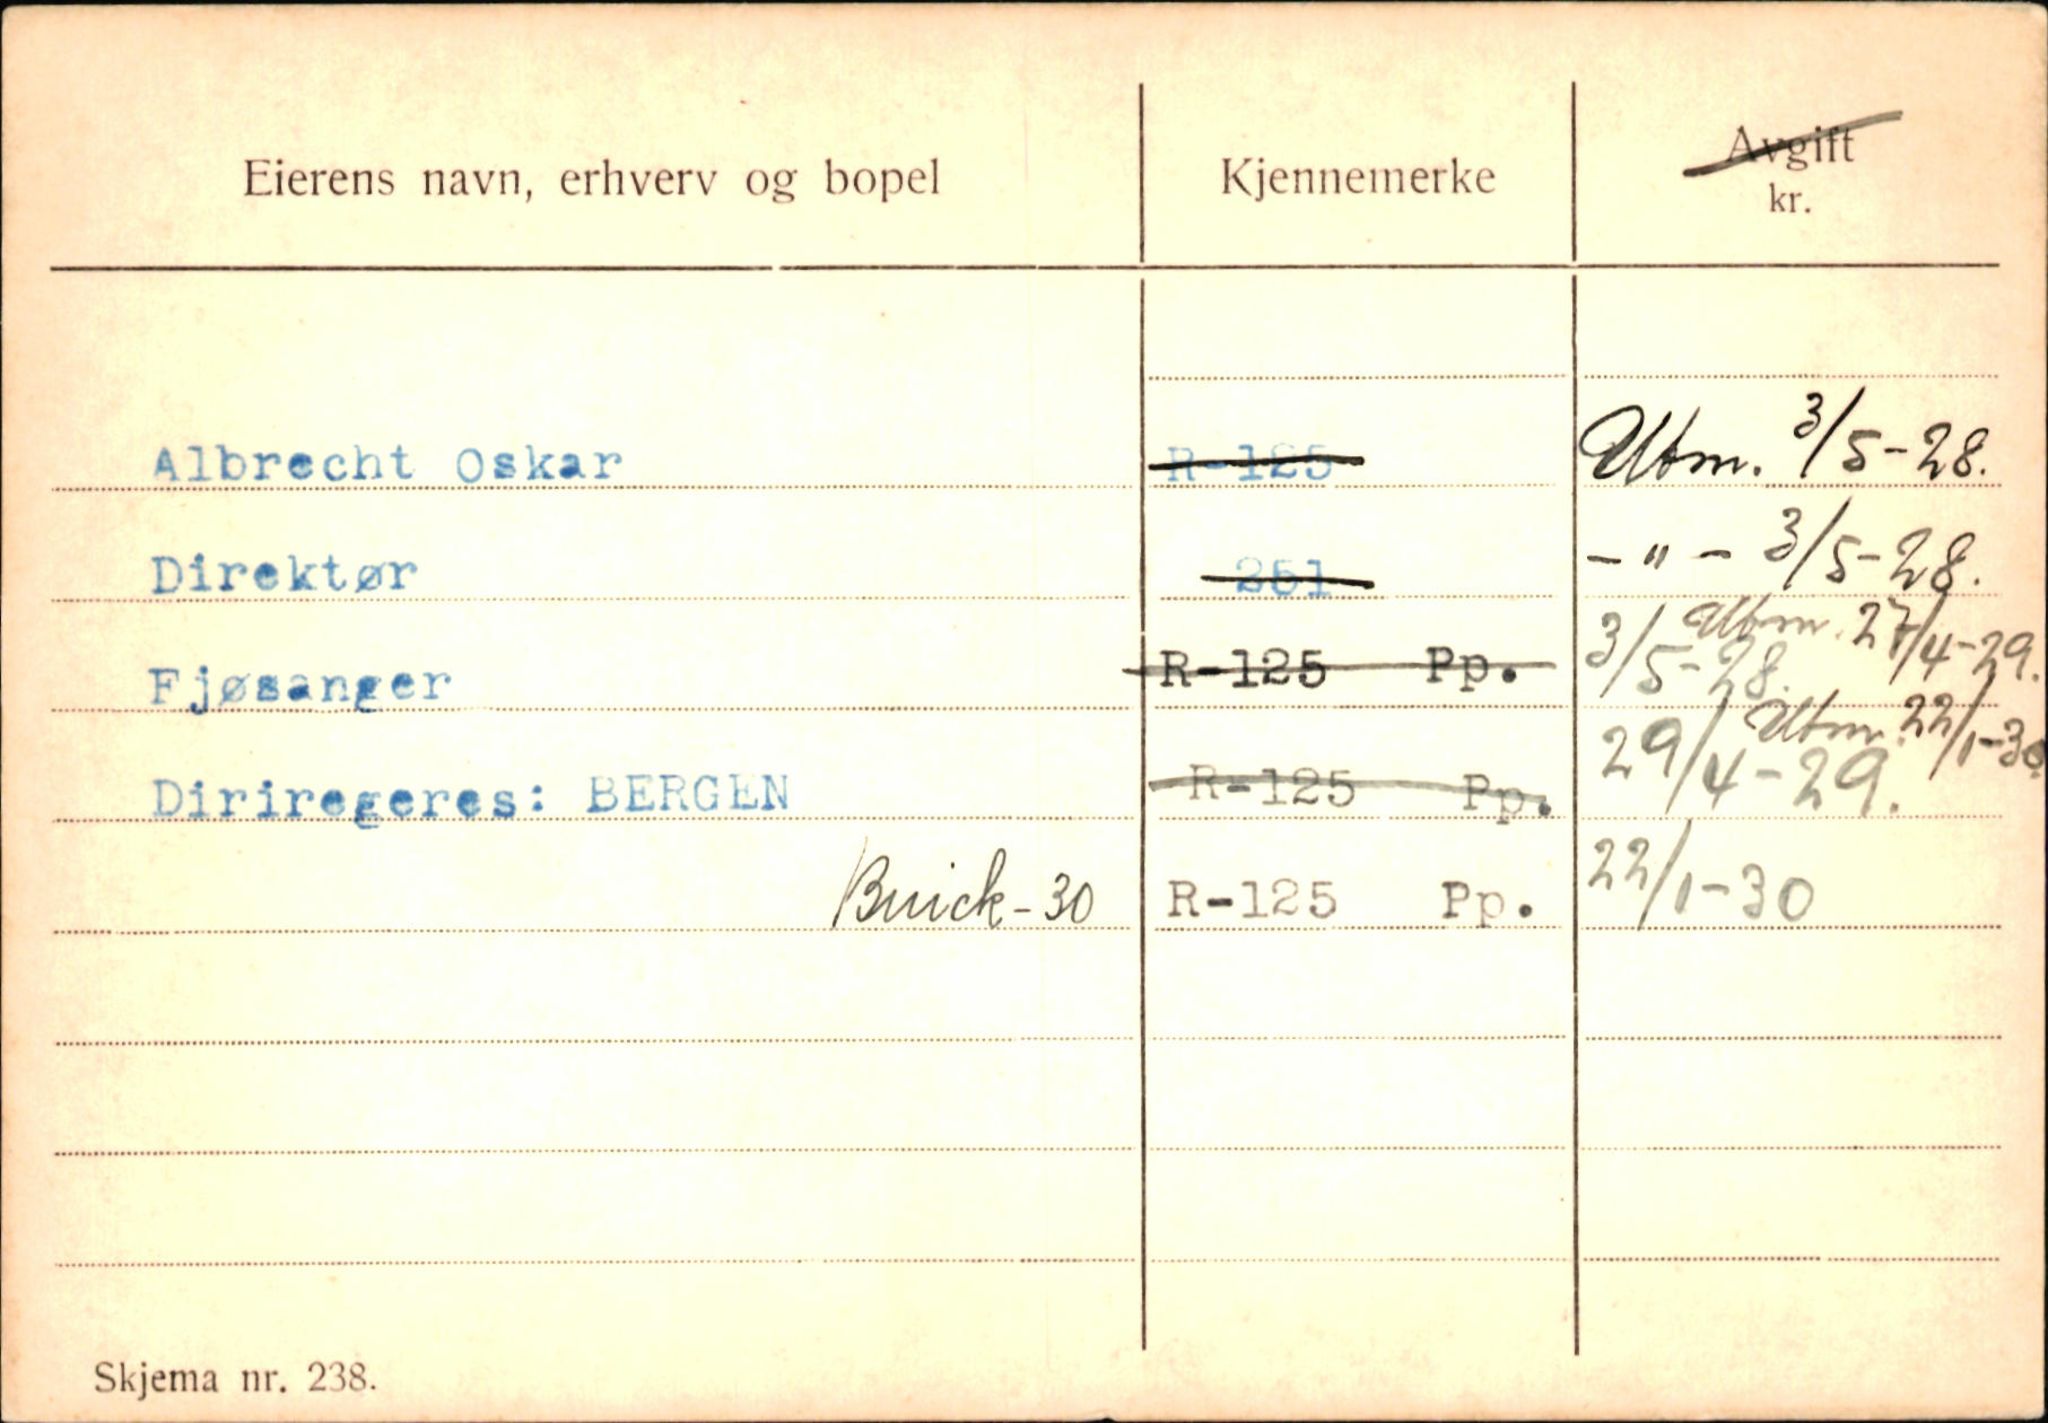 Eierens navn, erhverv og bopel Kjennemerke Avgift
kr.
Albrecht Oskar R-125 Utm. 3/5-28.
Direktør 251 - " - 3/5-28.
Utm. 27/4-29.
Fjøsanger R-125 Pp. 3/5-28.
Utm. 22/1-30
Dirirегeres: BERGEN R-125 Pp. 29/4-29.
Buick-30 R-125 Pp. 22/1-30
Skjema nr. 238.